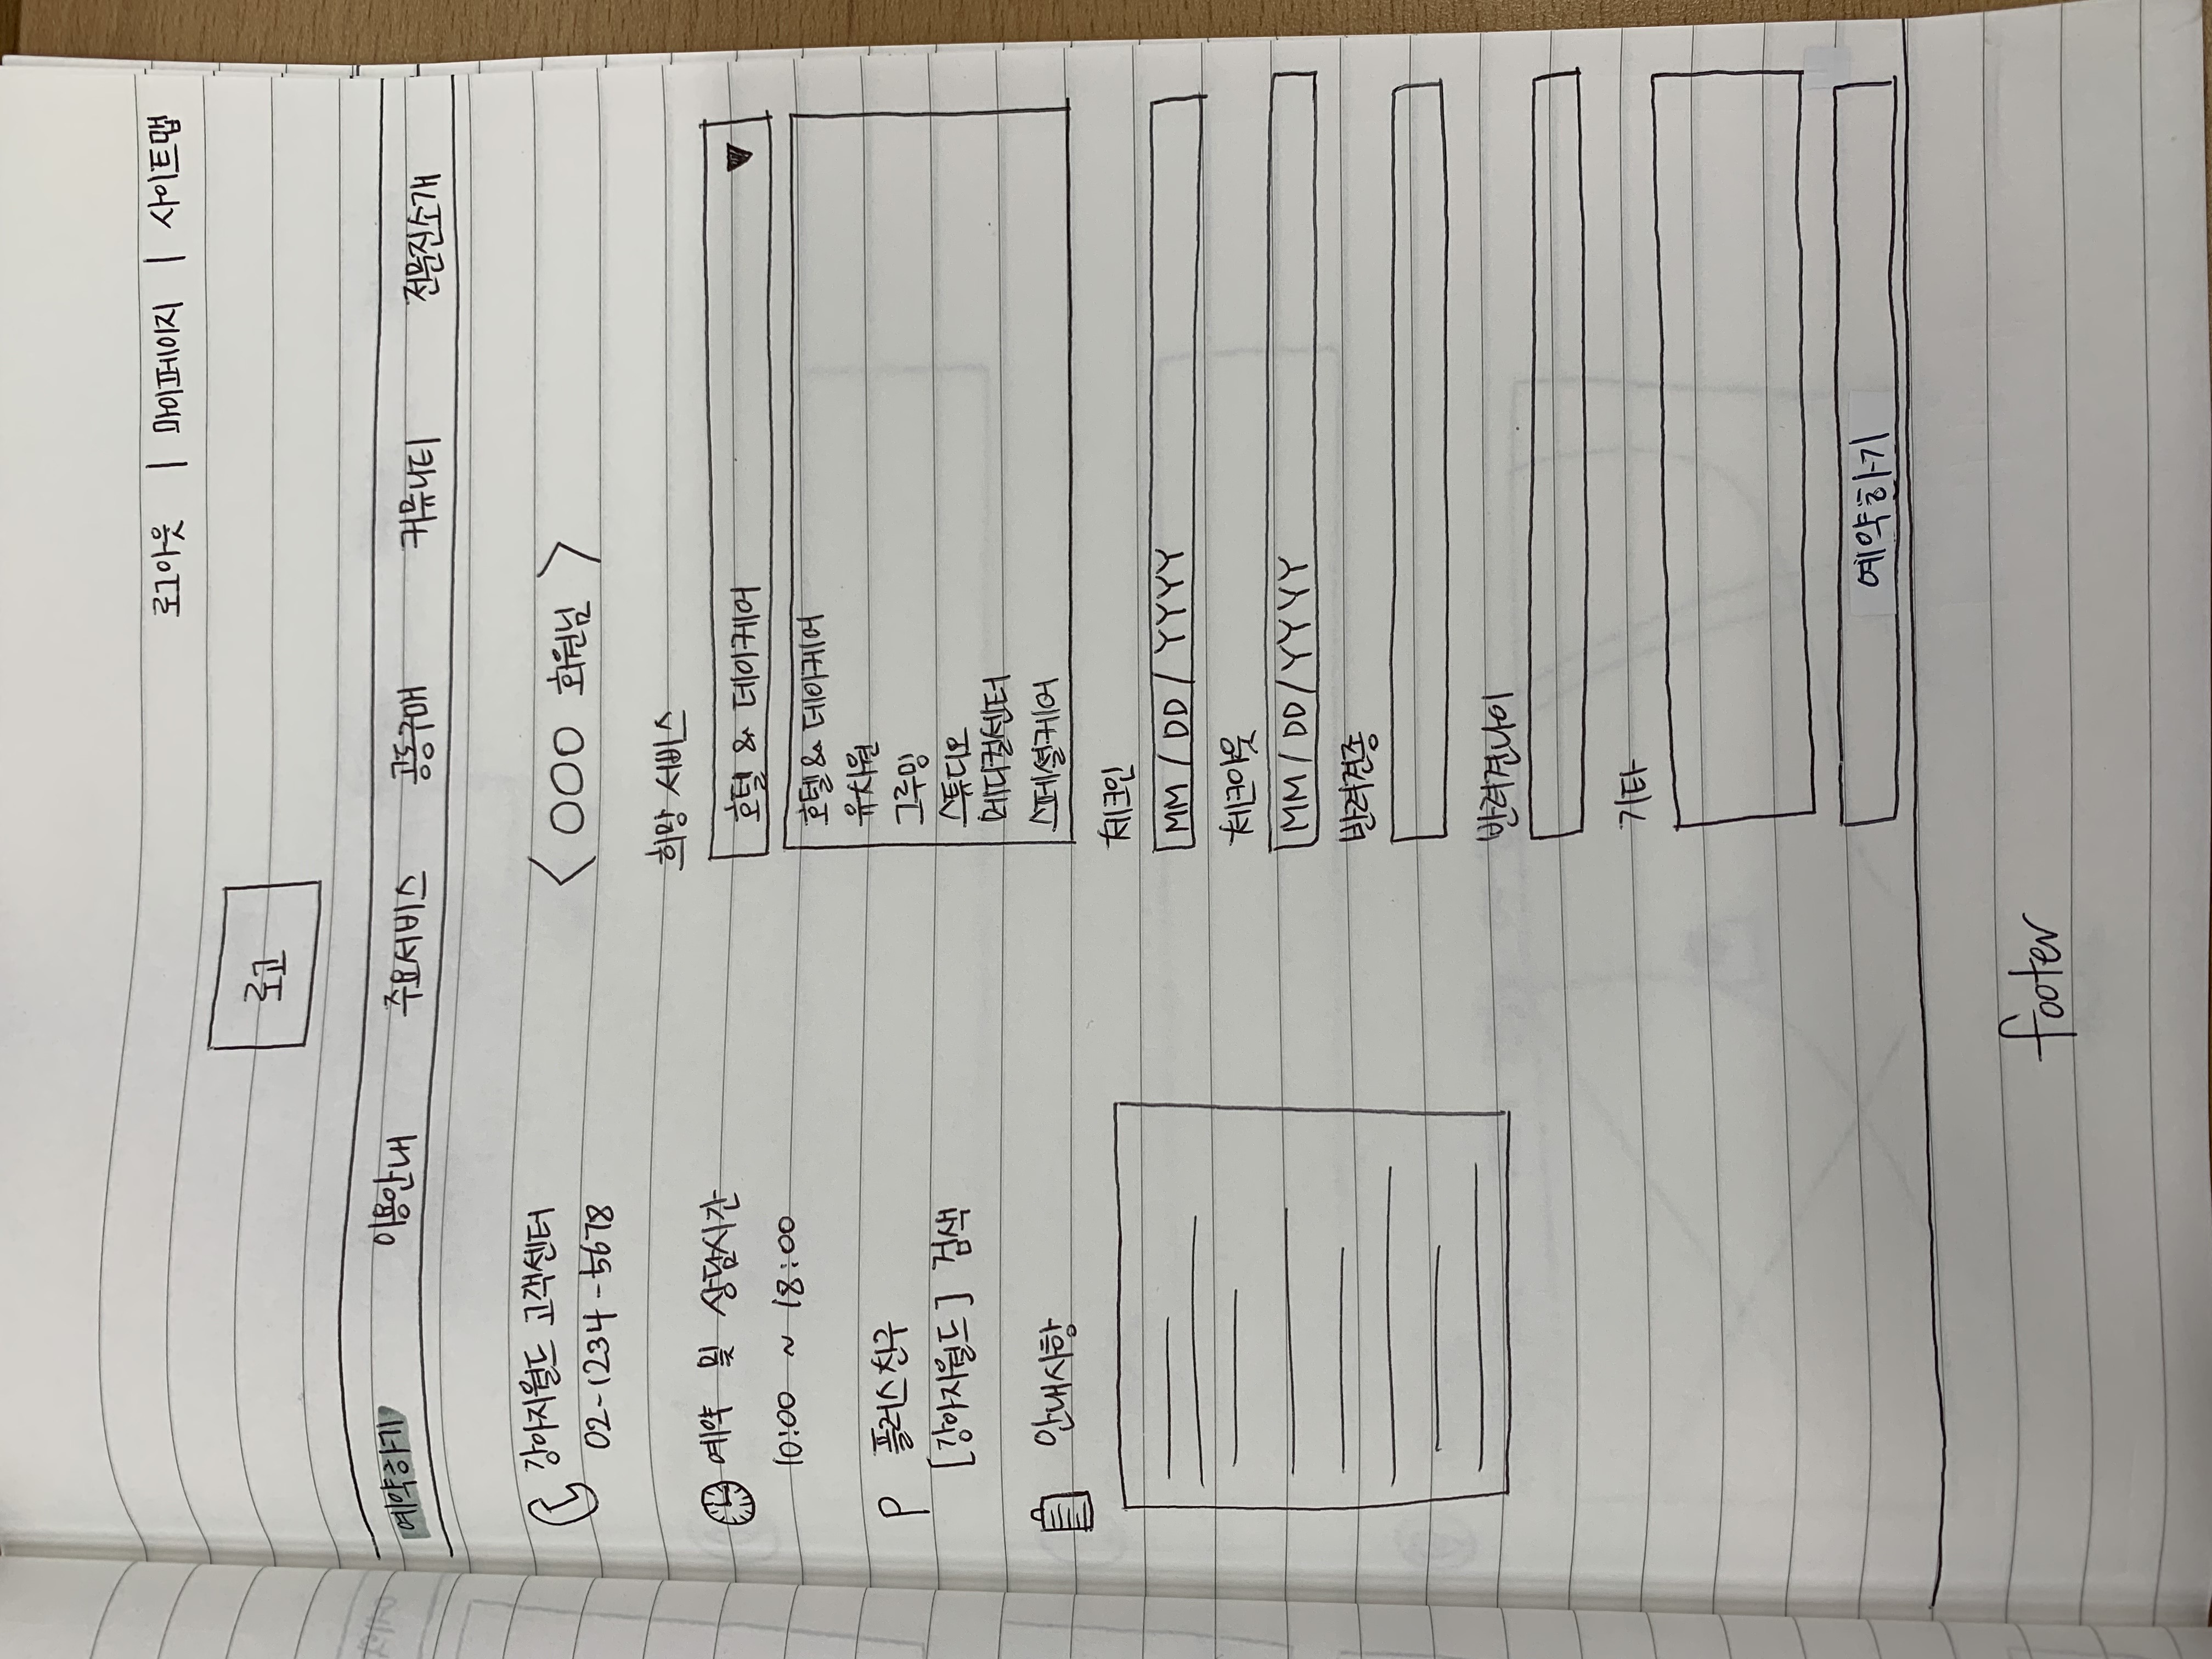 로그아웃 | 마이페이지 | 사이트맵
로고
예약하기 이용안내 주요서비스 공동구매 커뮤니티 전문진소개
강아지월드 고객센터
02-1234-5678
예약 및 상담시간
10:00 ~ 18:00
P 플러스친구
[강아지월드] 검색
안내사항
< OOO 회원님 >
희망 서비스
호텔 & 데이케어 ▼
호텔 & 데이케어
유치원
그루밍
스튜디오
메디컬센터
스페셜케어
체크인
MM / DD / YYYY
체크아웃
MM / DD / YYYY
반려견종
반려견나이
기타
예약하기
footer